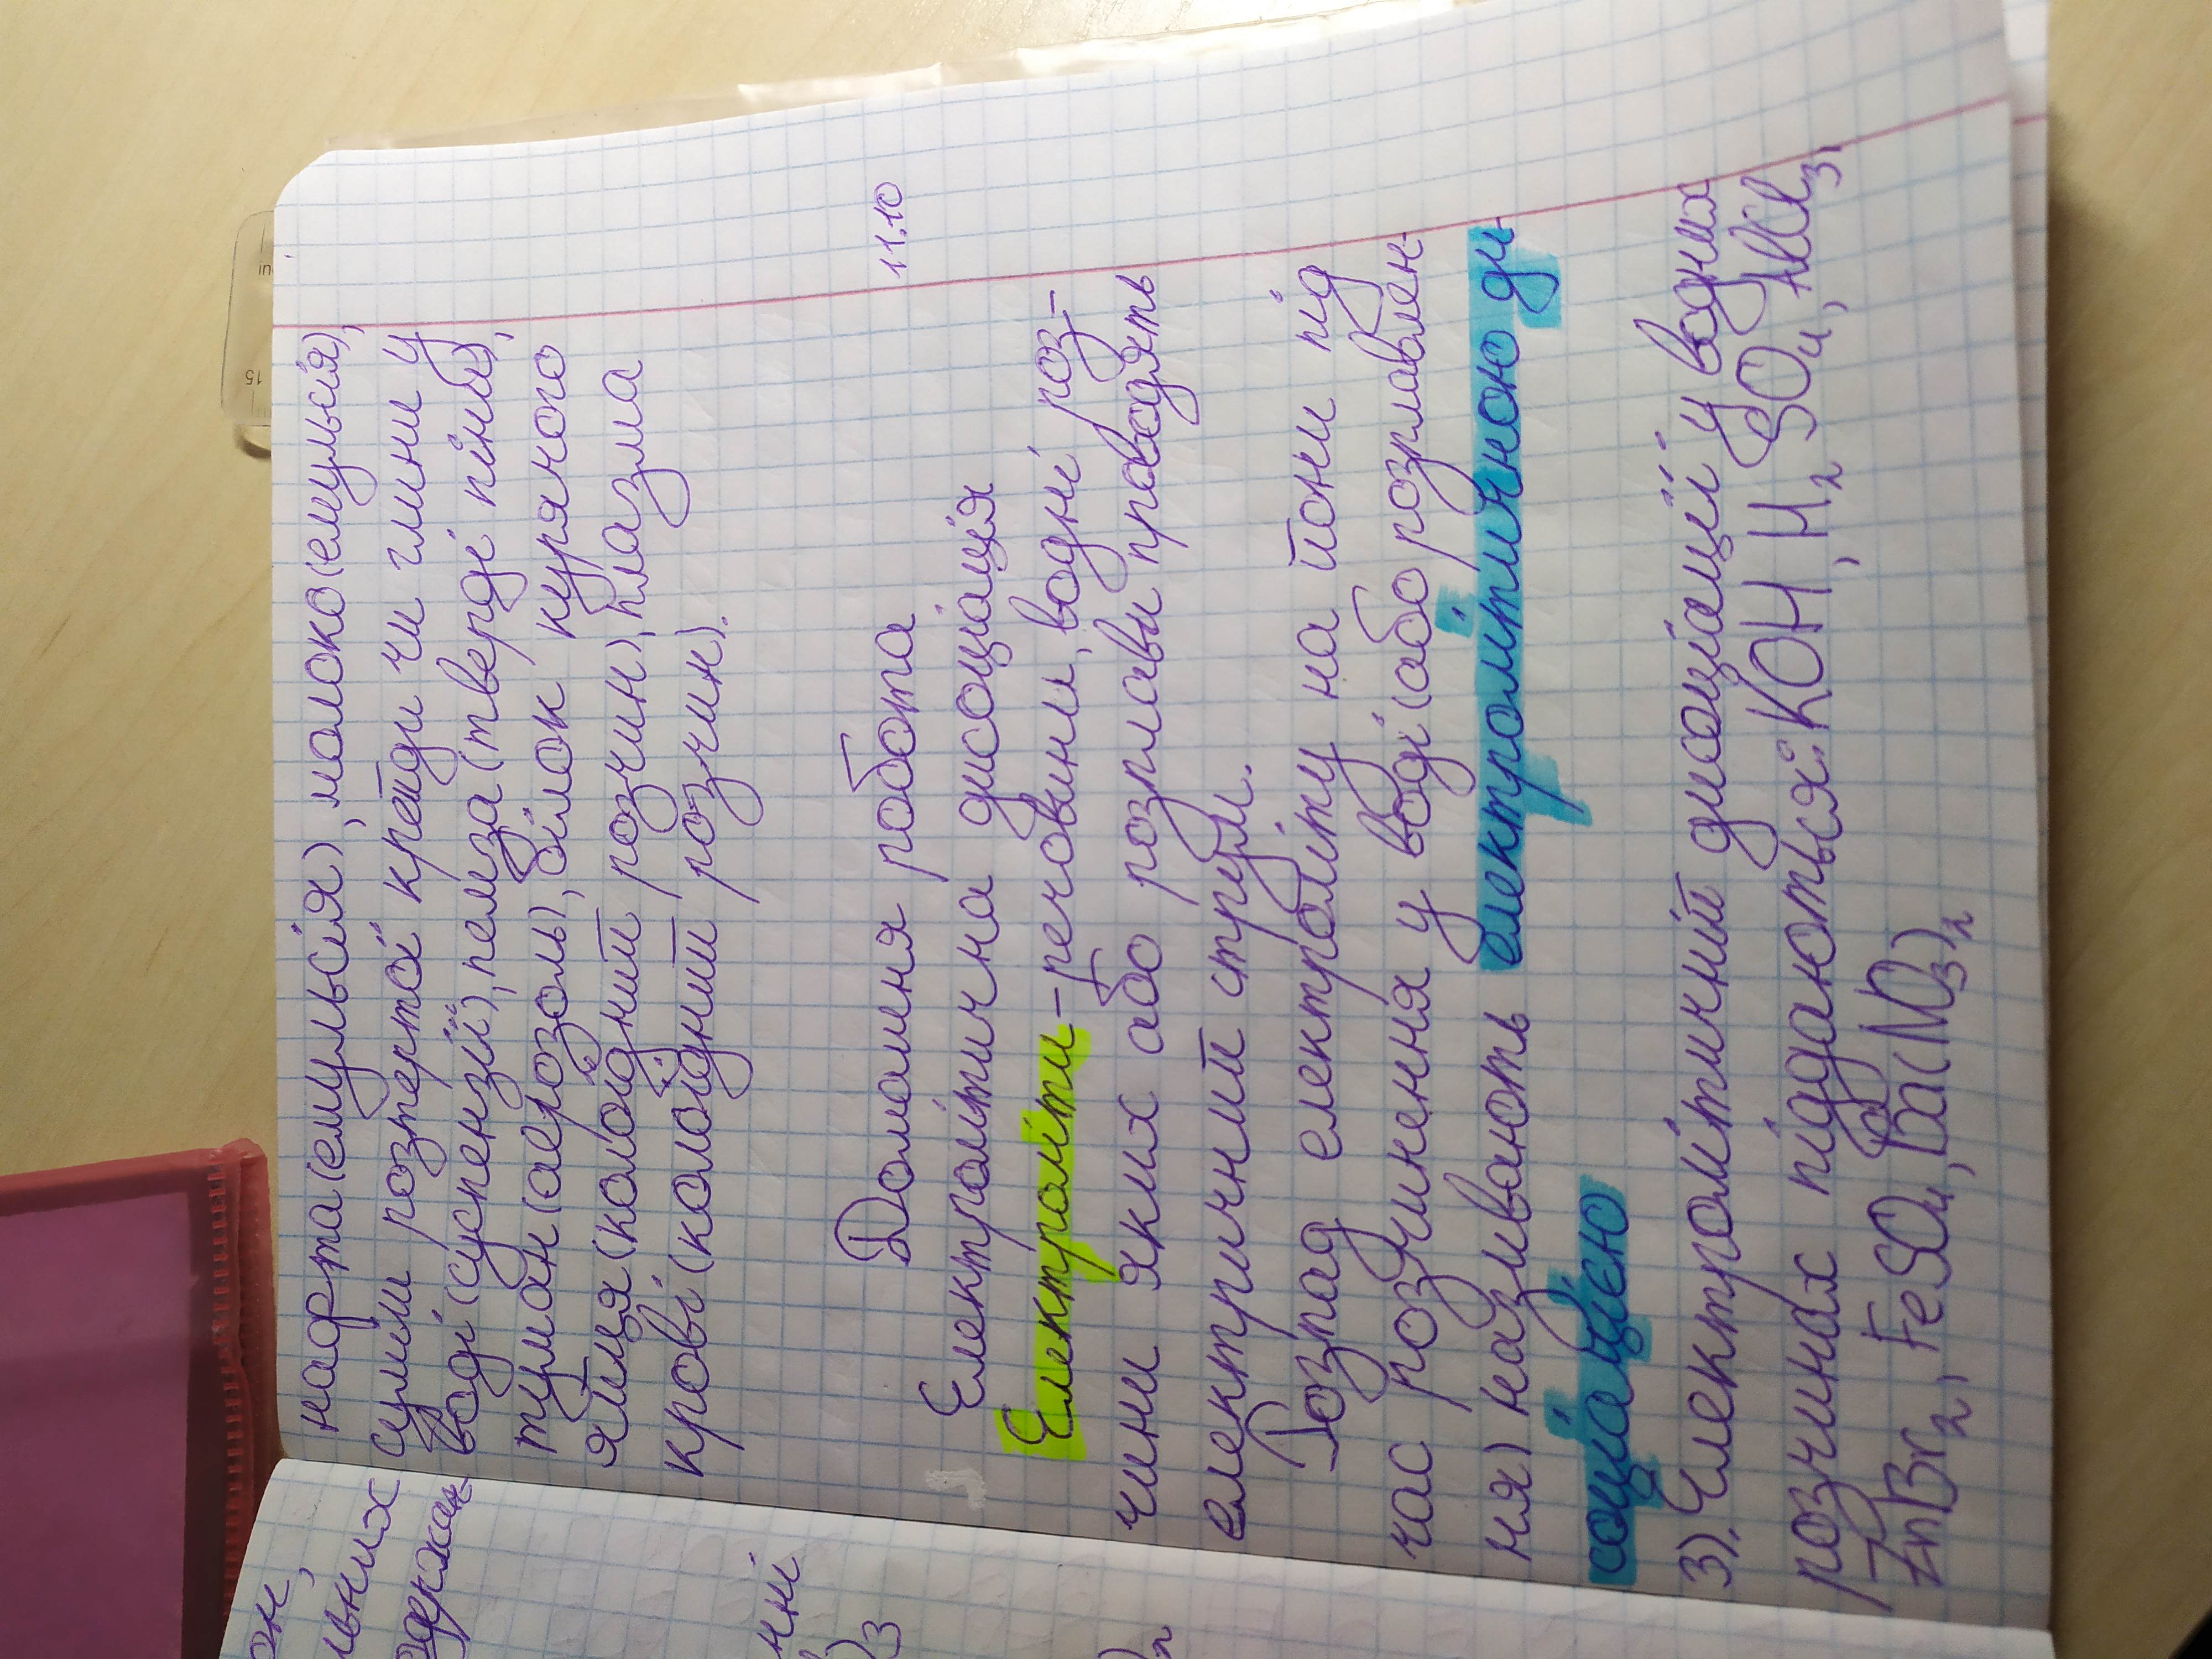 нафта(емульсія), молоко(емульсія),
суміш розтертої крейди чи глини у
воді(суспензії), пемза(тверді піни),
туман(аерозоль), білок курячого
яйця(колоїдний розчин), плазма
крові(колоїдний розчин).
11.10
Домашня робота
Електролітична дисоціація
Електроліти-речовини, водні роз-
чини яких або розплави проводять
електричний струм.
Розпад електроліту на йони під
час розчинення у воді(або розплавлен-
ня) називають електролітичною ди-
соціацією
3). Електролітичній дисоціації у водних
розчинах піддаються: KOH, H2SO4, AlCl3,
ZnBr2, FeSO4, Ba(NO3)2
он,
льних
держан-
чні
)3
)2
15